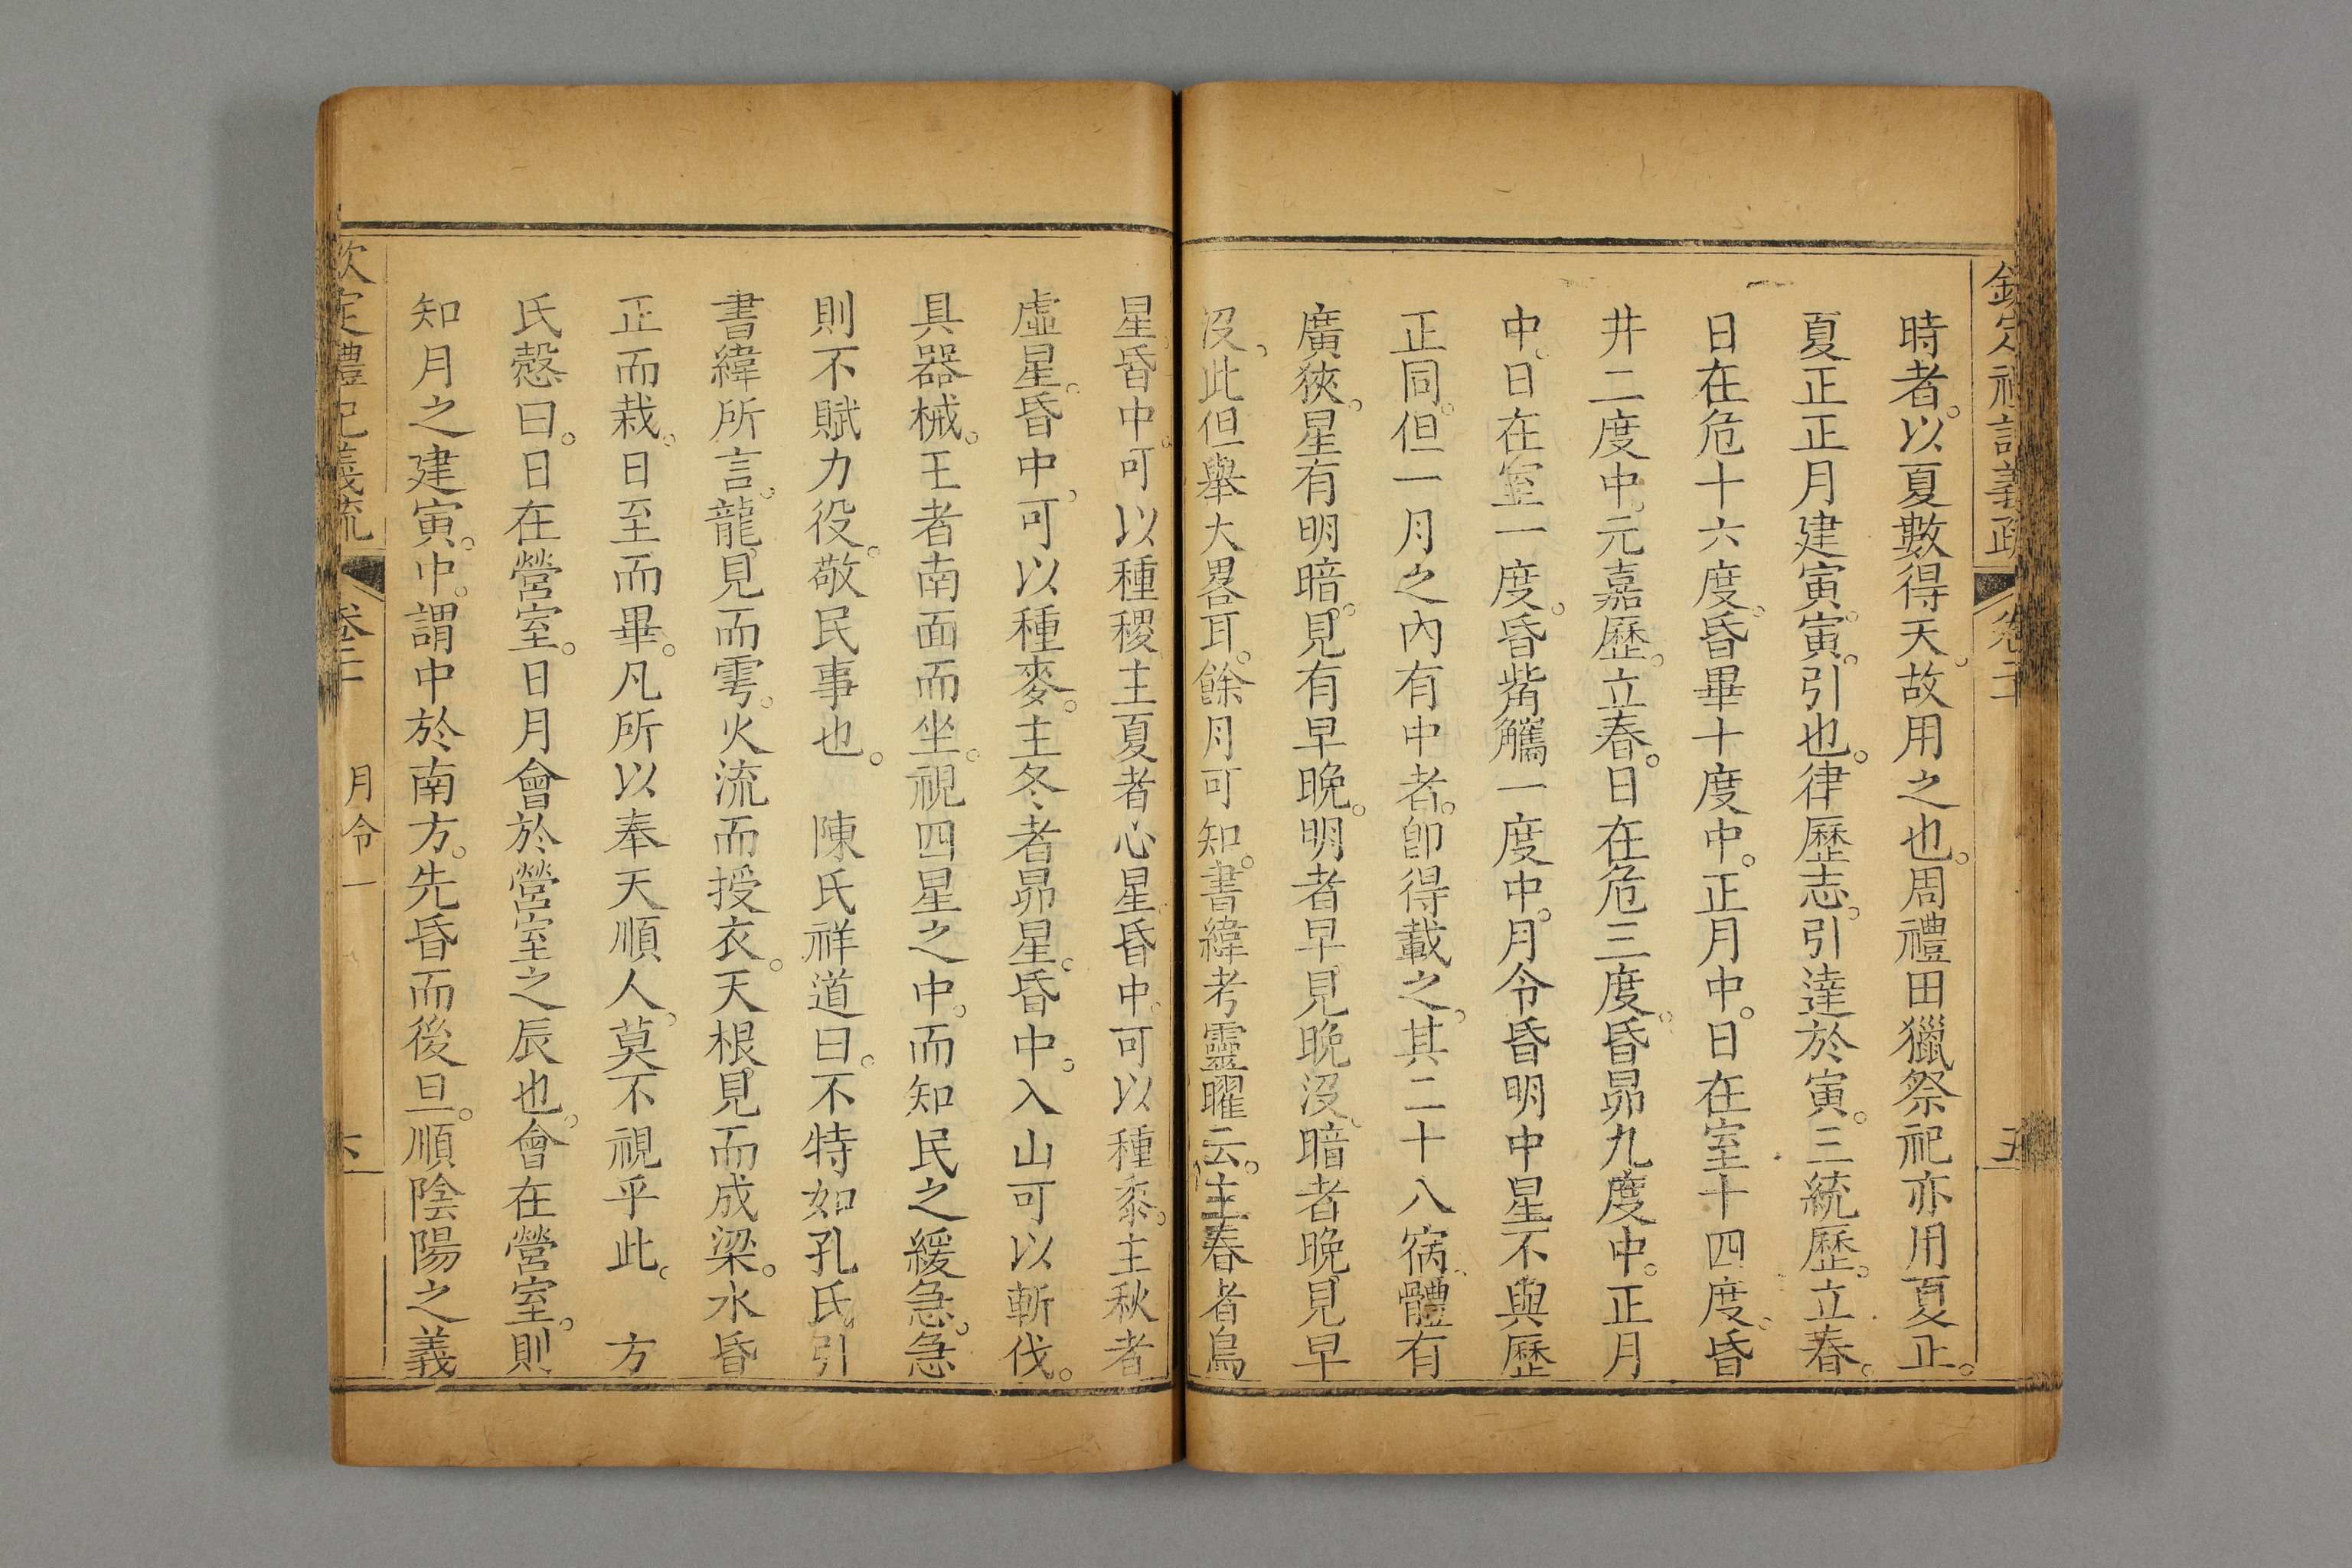 欽定禮記義疏 卷二十 五
時者。以夏數得天。故用之也。周禮田獵祭祀亦用夏正。
夏正正月建寅。寅。引也。律歷志。引達於寅。三統歷。立春。
日在危十六度。昏畢十度中。正月中。日在室十四度。昏
井二度中。元嘉歷。立春。日在危三度。昏昴九度中。正月
中。日在室一度。昏觜觿一度中。月令昏明中星不與歷
正同。但一月之內有中者。卽得載之。其二十八宿。體有
廣狹。星有明暗。見有早晚。明者早見晚沒。暗者晚見早
沒。此但舉大畧耳。餘月可知。書緯考靈曜云。主春者鳥
星。昏中。可以種稷。主夏者心星。昏中。可以種黍。主秋者
虛星。昏中。可以種麥。主冬者昴星。昏中。入山可以斬伐。
具器械。王者南面而坐。視四星之中。而知民之緩急。急
則不賦力役。敬民事也。 陳氏祥道曰。不特如孔氏引
書緯所言。龍見而雩。火流而授衣。天根見而成梁。水昏
正而栽。日至而畢。凡所以奉天順人。莫不視乎此。 方
氏慤曰。日在營室。日月會於營室之辰也。會在營室。則
知月之建寅。中。謂中於南方。先昏而後旦。順陰陽之義
欽定禮記義疏 卷二十 月令一 六